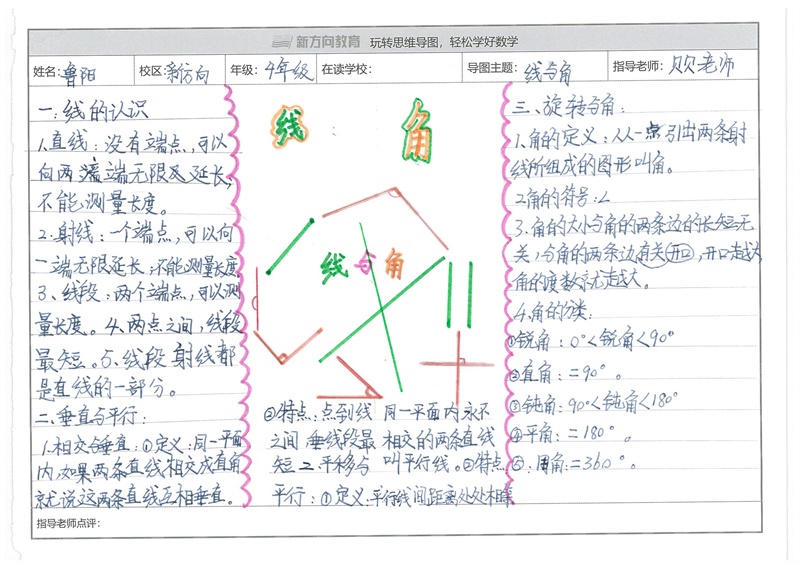 新方向教育 玩转思维导图，轻松学好数学
姓名: 鲁阳 校区: 新方向 年级: 4年级 在读学校: 导图主题: 线与角 指导老师: 贝贝老师
一:线的认识
1.直线:没有端点,可以
向两端无限延长,
不能测量长度。
2.射线:一个端点,可以向
一端无限延长,不能测量长度
3、线段:两个端点,可以测
量长度。4、两点之间,线段
最短。5、线段射线都
是直线的一部分。
二、垂直与平行:
1.相交与垂直:①定义:同一平面
内,如果两条直线相交成直角
就说这两条直线互相垂直。
线 角
线与角
②特点:点到线 同一平面内永不
之间垂线段最 相交的两条直线
短 二.平移与 叫平行线。②特点
平行:①定义:平行线间距离处处相等
三、旋转与角:
1.角的定义:从一点引出两条射
线所组成的图形叫角。
2.角的符号:∠
3.角的大小与角的两条边的长短无
关,与角的两条边有关开口,开口越大
角的度数就越大。
4.角的分类:
①锐角:0°<锐角<90°
②直角:=90°。
③钝角:90°<钝角<180°
④平角:=180°。
⑤:周角:=360°。
指导老师点评: